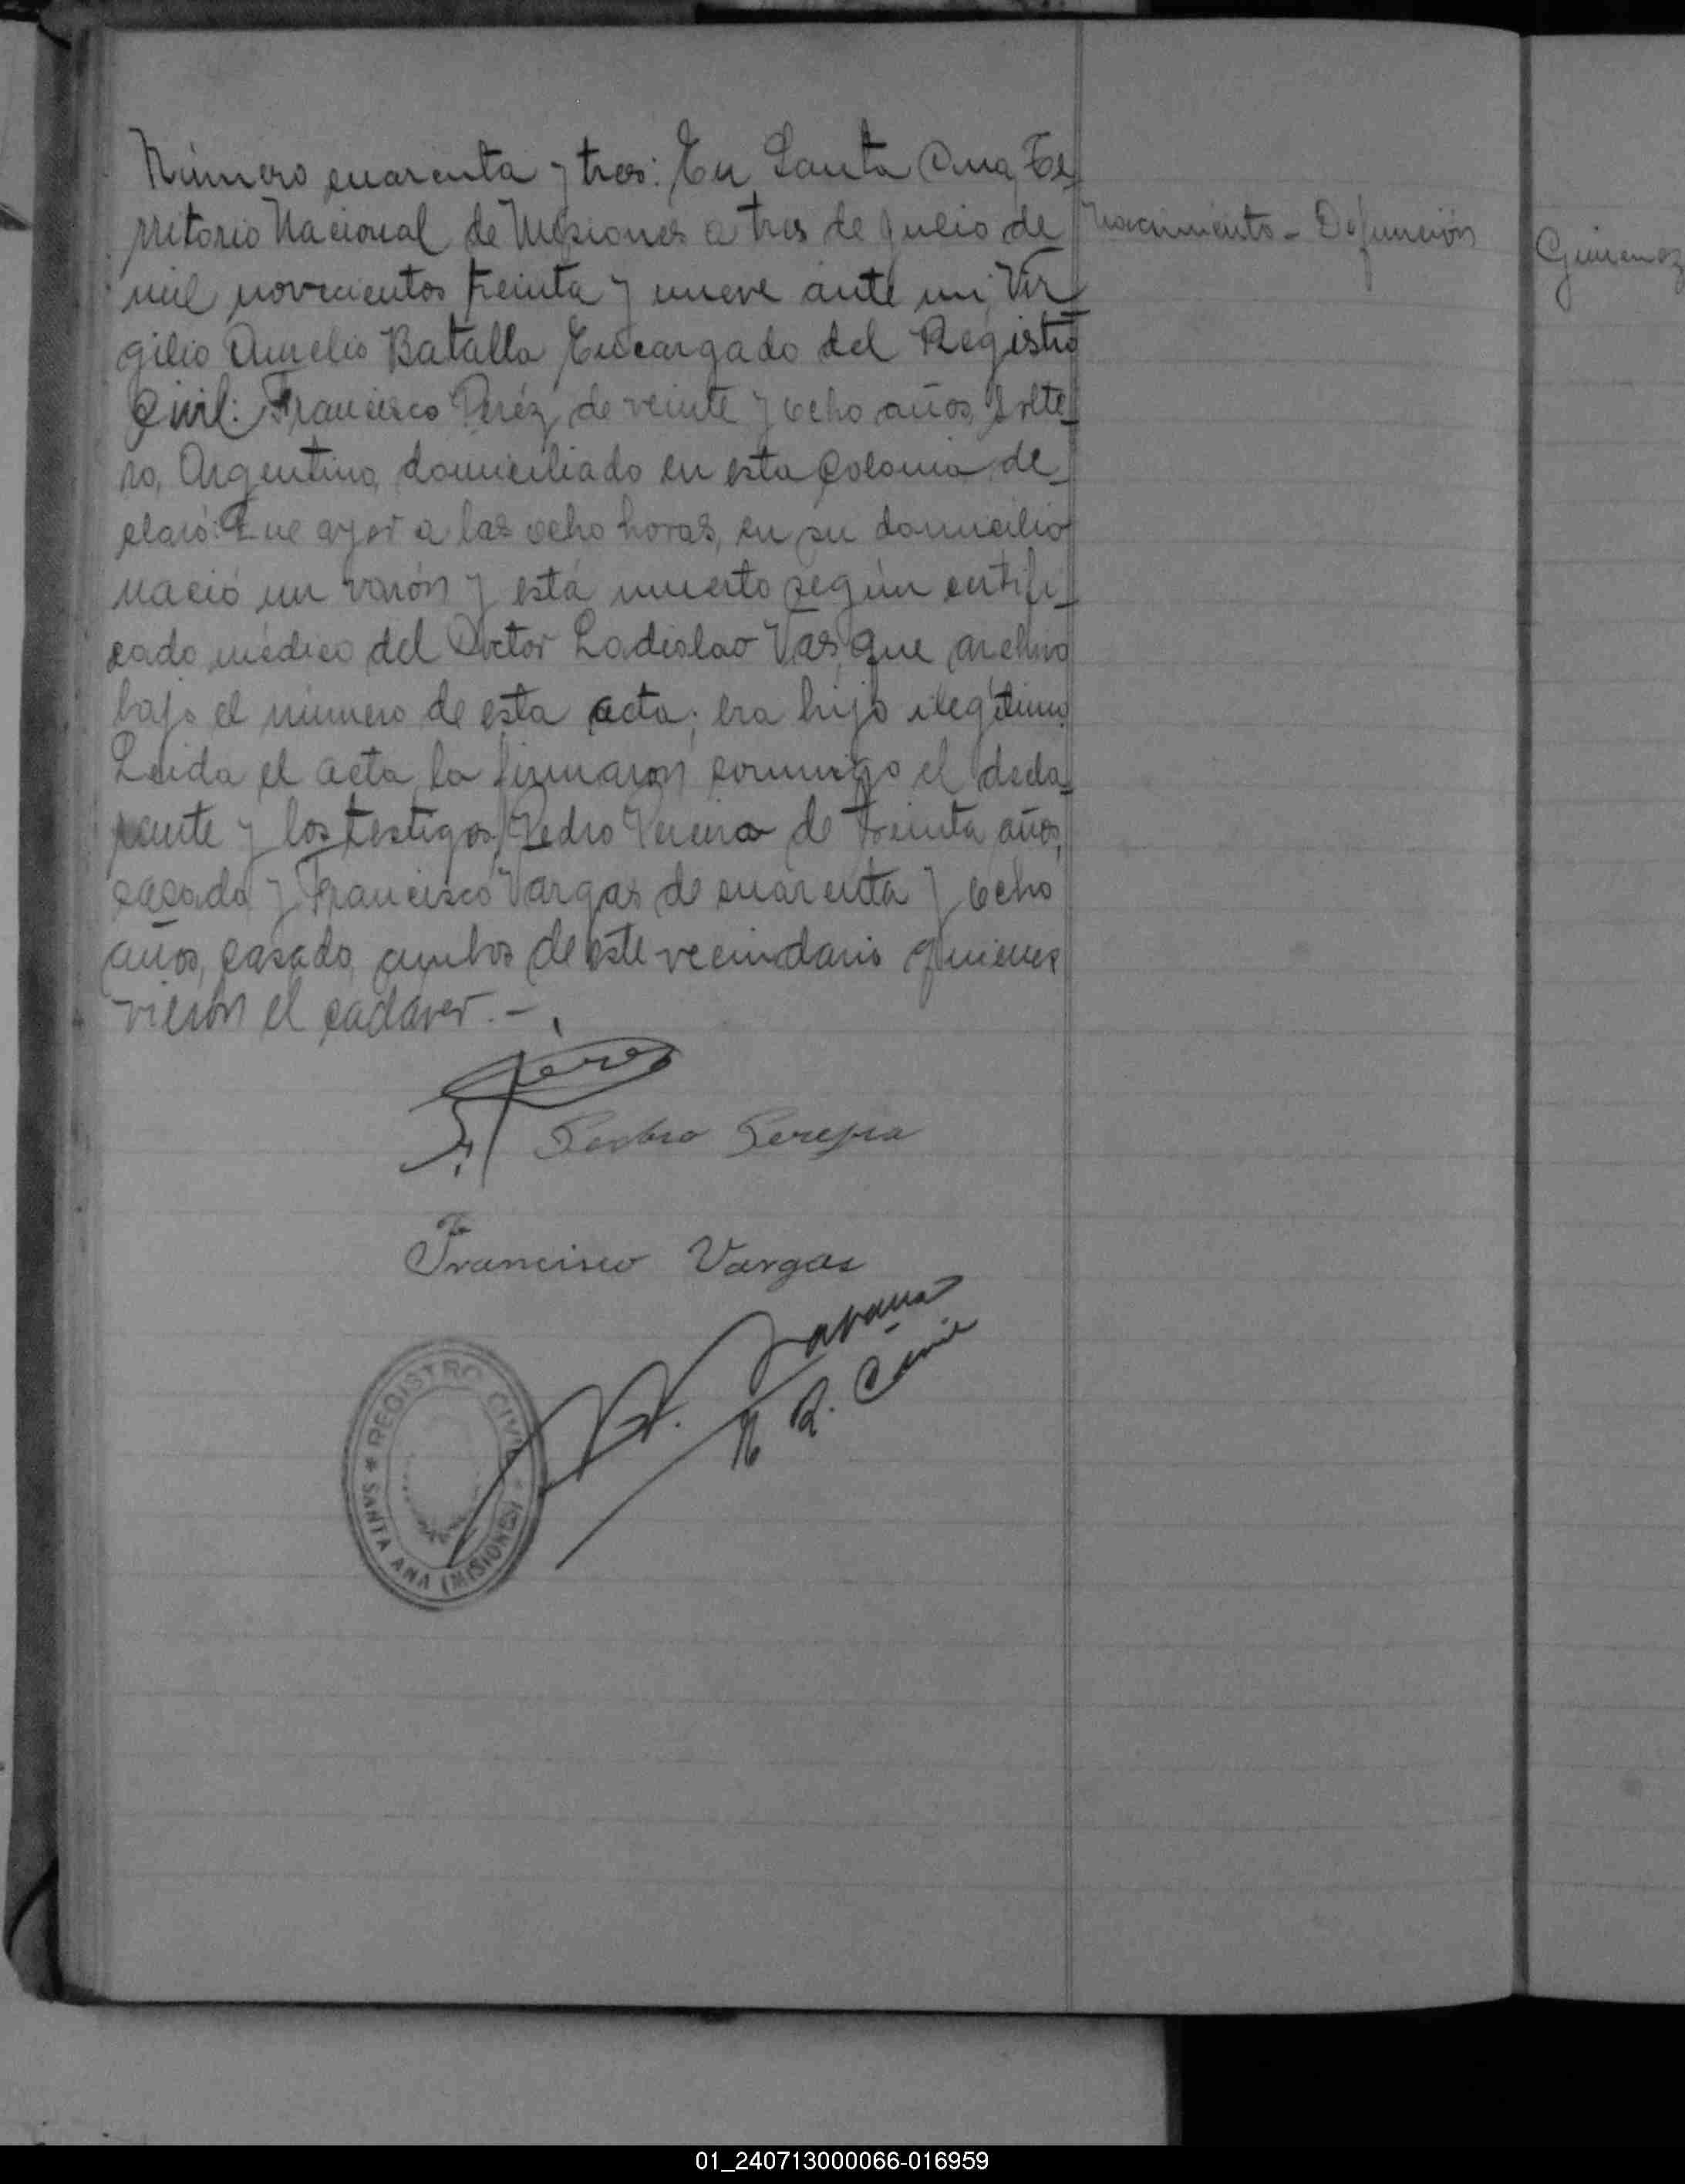 Número cuarenta y tres: En Santa Ana, Te-
rritorio Nacional de Misiones a tres de julio de
mil novecientos treinta y nueve ante mi, Vir-
gilio Aurelio Batalla Encargado del Registro
Civil: Francisco Peréz, de veinte y ocho años, solte-
ro, Argentino, domiciliado en esta Colonia, de-
claró: Que ayer a las ocho horas, en su domicilio
nació un varón y está muerto según certifi-
cado médico del Doctor Ladislao Vas, que archivo
bajo el número de esta acta; era hijo ilegítimo.
Leida el acta, la firmaron conmigo el decla-
rante y los testigos, Pedro Pereira de treinta años,
casado y Francisco Vargas de cuarenta y ocho
años, casado, ambos de este vecindario quienes
vieron el cadáver. -
Nacimiento - Defunción
Gimenez
Pedro Pereyra
Francisco Vargas
R. Civil
REGISTRO CIVIL
* SANTA ANA (MISIONES) *
01_240713000066-016959